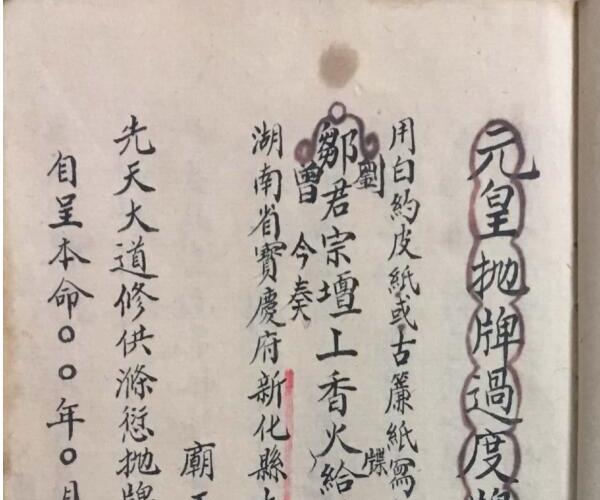 元皇抛牌過度
用白約皮紙或古簾紙寫
劉
牒
鄒君宗壇上香火給
曾 今奏
湖南省寶慶府新化縣
廟
先天大道修供滌愆抛牌
自呈本命〇〇年〇月